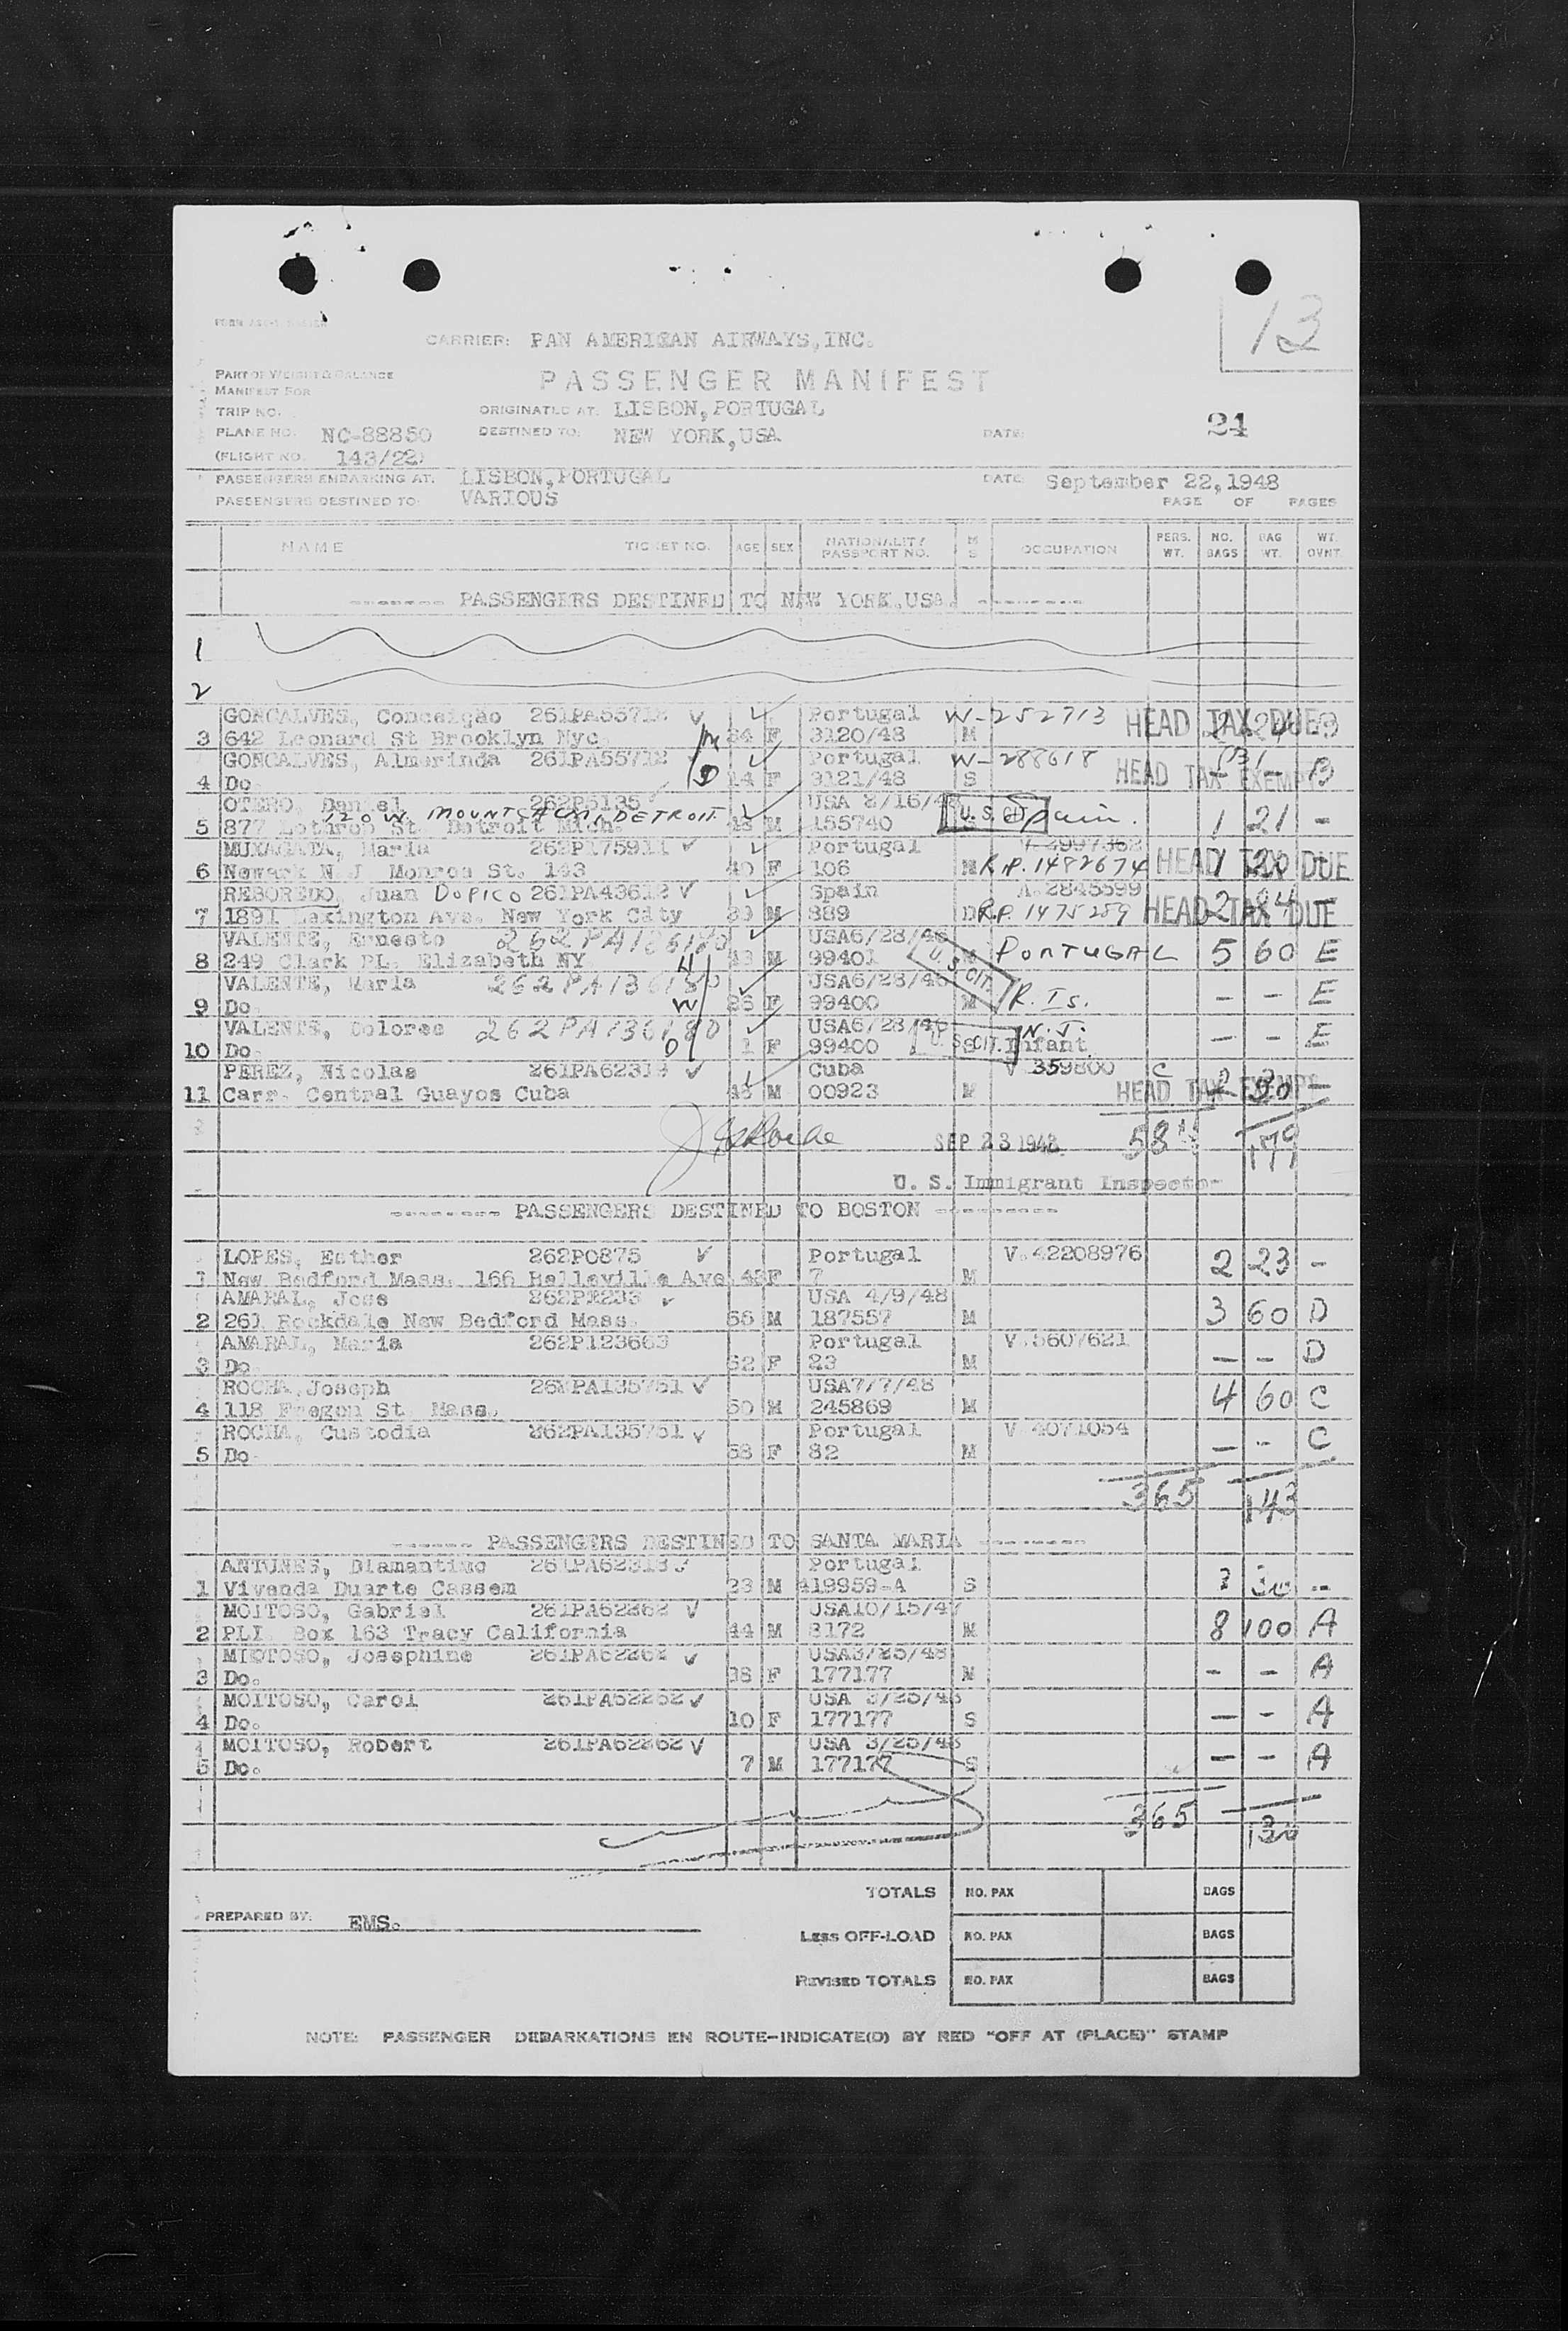 13
CARRIER: PAN AMERICAN AIRWAYS, INC.
PART OF WEIGHT & BALANCE
MANIFEST FOR
PASSENGER MANIFEST
TRIP NO. ORIGINATED AT: LISBON, PORTUGAL
24
PLANE NO. NC-88850 DESTINED TO: NEW YORK, USA DATE:
(FLIGHT NO. 143/22)
PASSENGERS EMBARKING AT: LISBON, PORTUGAL DATE: September 22, 1948
PASSENGERS DESTINED TO: VARIOUS PAGE OF PAGES
NAME TICKET NO. AGE SEX NATIONALITY PASSPORT NO. M S OCCUPATION PERS. WT. NO. BAGS BAG WT. WT. OVNT.
------- PASSENGERS DESTINED TO NEW YORK, USA. ---------
1
2
GONCALVES, Conceição Portugal W-252713 HEAD TAX DUE B
3 642 Leonard St Brooklyn Nyc M 34 F 3120/48 M
GONCALVES, Almerinda 261PA55712 Portugal W-288618 HEAD TAX EXEMPT B
4 Do D 14 F 3121/48 S
OTERO, Daniel 262P5135 USA 8/16/48 U.S. CIT Spain.
120 W. MOUNT DETROIT.
5 877 Lothrop St. Detroit Mich. M 155740 1 21 -
Maria 262P175911 Portugal
6 Newark N.J. Monroe St. 143 40 F 106 M R.P. 1482674 HEAD TAX DUE 1 20
REBOREDO, Juan DOPICO 261PA43612 Spain A.2845599
7 1891 Lexington Ave. New York City 39 M 889 R.P. 1475259 HEAD TAX DUE 2 84
VALENTE, Ernesto 262PA136180 USA6/28/46 PORTUGAL 5 60 E
8 249 Clark PL. Elizabeth NY H 43 M 99401 M U.S. CIT.
VALENTE, Maria 262PA136180 USA6/28/46 R. Is. - - E
9 Do W 26 F 99400 M
VALENTE, Dolores 262PA136180 USA6/28/46 U.S. CIT. N.J. - - E
10 Do D 1 F 99400 S Infant
PEREZ, Nicolas 261PA62319 Cuba V 359800 C
11 Carr. Central Guayos Cuba 48 M 00923 M HEAD TAX EXEMPT 30 -
SEP 23 1948 179
U. S. Immigrant Inspector
-------- PASSENGERS DESTINED TO BOSTON ----------
LOPES, Esther 262P0875 Portugal V.42208976 2 23 -
1 New Bedford Mass. 166 Belleville Ave. F 7 M
AMARAL, Jose USA 4/9/48 3 60 D
2 261 Rockdale New Bedford Mass. M 187557 M
AMARAL, Maria 262P123663 Portugal V.5607621 - - D
3 Do F 23 M
ROCHA, Joseph 262PA135751 USA7/7/48 4 60 C
4 118 St. Mass. M 245869 M
ROCHA, Custodia 262PA135751 Portugal V 4071054 - - C
5 Do 58 F 82 M
365 143
------ PASSENGERS DESTINED TO SANTA MARIA --------
ANTUNES, Diamantino Portugal 30 --
1 Vivenda Duarte Cassem 23 M 419959-A S
MOITOSO, Gabriel 261PA62262 USA10/15/47 8 100 A
2 PLI Box 163 Tracy California 44 M 8172 M
MIOTOSO, Josephine 261PA62262 USA3/25/48 - - A
3 Do. 38 F 177177 M
MOITOSO, Carol 261PA62262 USA 3/25/48 - - A
4 Do. 10 F 177177 S
MOITOSO, Robert 261PA62262 USA 3/25/48 - - A
5 Do. 7 M 177177 S
365 130
TOTALS NO. PAX BAGS
PREPARED BY: EMS.
LESS OFF-LOAD NO. PAX BAGS
REVISED TOTALS NO. PAX BAGS
NOTE: PASSENGER DEBARKATIONS EN ROUTE—INDICATE(D) BY RED "OFF AT (PLACE)" STAMP